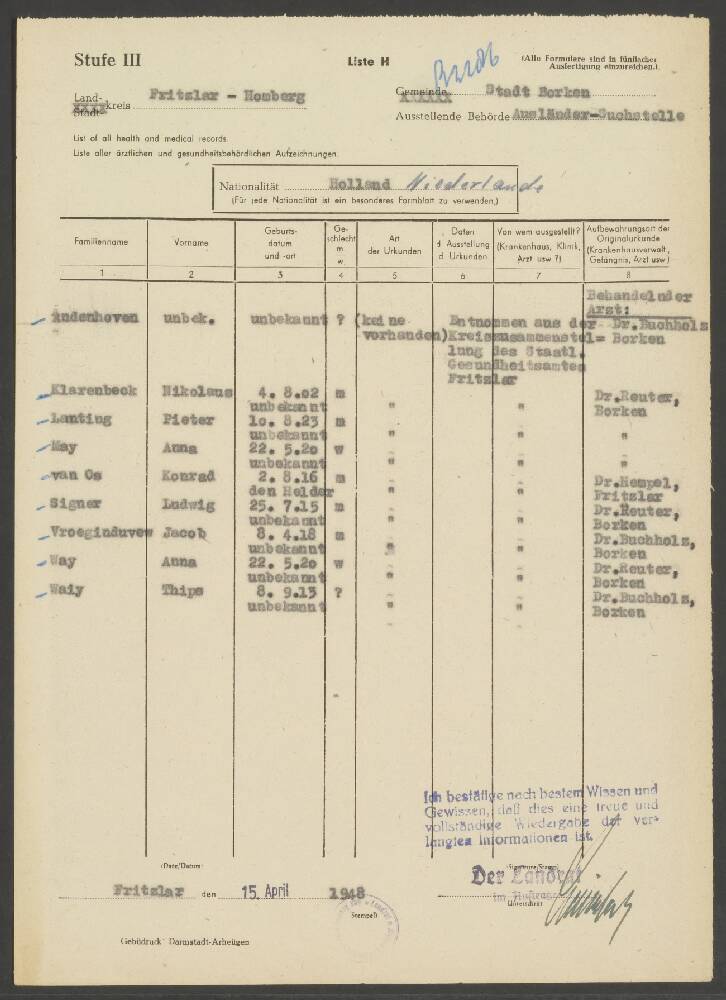 Stufe III
Liste H
(Alle Formulare sind in fünffacher Ausfertigung einzureichen.)
Land-
Stadt-
kreis Fritzlar - Homberg
Gemeinde Stadt Borken
Ausstellende Behörde Ausländer-Suchstelle
List of all health and medical records.
Liste aller ärztlichen und gesundheitsbehördlichen Aufzeichnungen.
Nationalität Holland Niederlande
(Für jede Nationalität ist ein besonderes Formblatt zu verwenden.)
Familienname Vorname Geburts-datum und -ort Ge-schlecht m w Art der Urkunden Daten d. Ausstellung d. Urkunden Von wem ausgestellt? (Krankenhaus, Klinik, Arzt usw.?) Aufbewahrungsort der Originalurkunde (Krankenhausverwalt., Gefängnis, Arzt usw.)
1 2 3 4 5 6 7 8
Behandelnder
Arzt:
Andenhoven unbek. unbekannt ? (keine Entnommen aus der Dr.Buchholz
vorhanden) Kreiszusammenstel= Borken
lung des Staatl.
Gesundheitsamtes
Fritzlar
Klarenbeck Nikolaus 4. 8.02 m Dr.Reuter,
unbekannt " " Borken
Lanting Pieter 10. 8.23 m
unbekannt " " "
May Anna 22. 5.20 w
unbekannt " " "
van Os Konrad 2. 8.16 m Dr.Hempel,
den Helder " " Fritzlar
Signer Ludwig 25. 7.15 m Dr.Reuter,
unbekannt " " Borken
Vroeginduvew Jacob 8. 4.18 m Dr.Buchholz,
unbekannt " " Borken
Way Anna 22. 5.20 w Dr.Reuter,
unbekannt " " Borken
Waiy Thips 8. 9.13 ? Dr.Buchholz,
unbekannt " " Borken
Ich bestätige nach bestem Wissen und
Gewissen, daß dies eine treue und
vollständige Wiedergabe der ver-
langten Informationen ist.
(Date/Datum)
(Signature/Stamp)
Der Landrat
im Auftrage
Unterschrift
Fritzlar den 15. April 1948
Stempel)
Gebildruck Darmstadt-Arheilgen